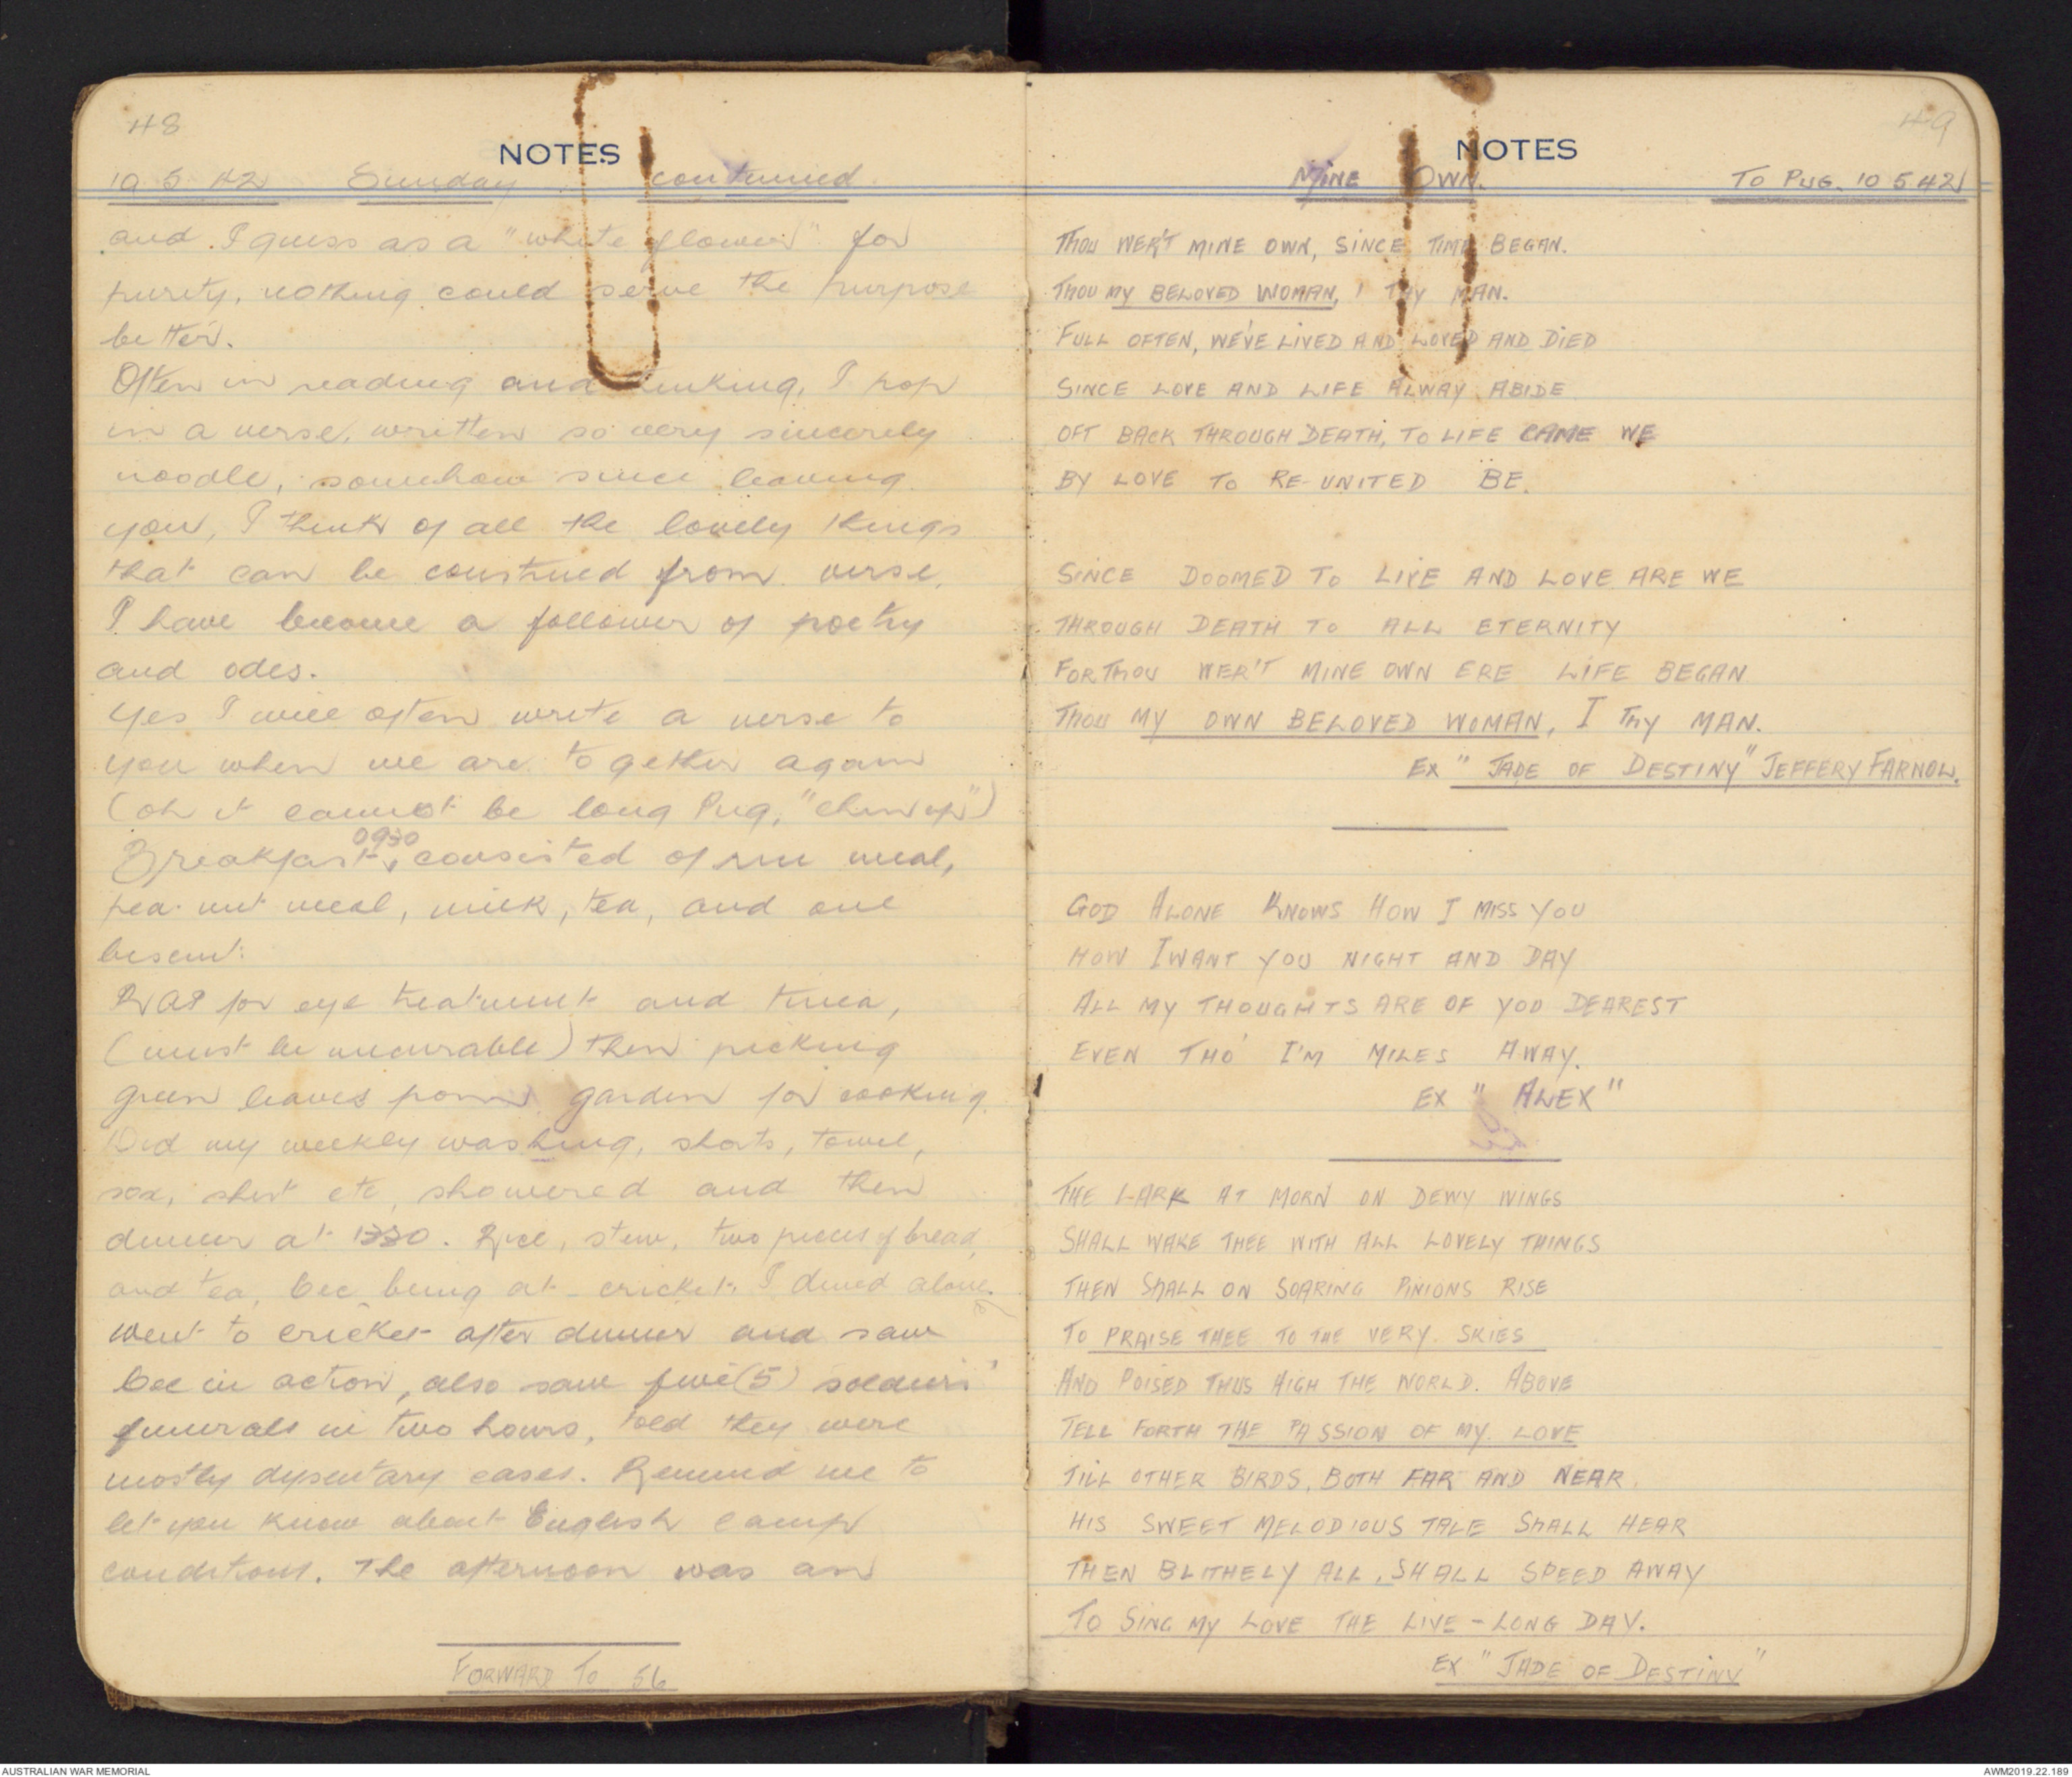 48
NOTES
10 5 42 Sunday continued
and I guess as a "white flower" for
purity, nothing could serve the purpose
better.
Often in reading and thinking, I pop
in a verse, written so very sincerely
noodle, somehow since leaving
you, I think of all the lovely things
that can be construed from verse,
I have become a follower of poetry
and odes.
Yes I will often write a verse to
you when we are together again
(oh it cannot be long Pug, "chin up")
0930
Breakfast, consisted of rice meal,
pea nut meal, milk, tea, and one
biscuit.
RAP for eye treatment and tinea,
(must be incurable) then picking
green leaves from garden for cooking.
Did my weekly washing, shorts, towel,
sox, shirt etc, showered and then
dinner at 1330. Rice, stew, two pieces of bread,
and tea, Cec being at cricket, I dined alone.
Went to cricket after dinner and saw
Cec in action, also saw five (5) soldiers'
funerals in two hours, told they were
mostly dysentary cases. Remind me to
let you know about English camp
conditions. The afternoon was an
FORWARD TO 56
49
NOTES
MINE OWN. TO PUG. 10 5 42
THOU WER'T MINE OWN, SINCE TIME BEGAN.
THOU MY BELOVED WOMAN, I THY MAN.
FULL OFTEN, WE'VE LIVED AND LOVED AND DIED
SINCE LOVE AND LIFE ALWAY ABIDE
OFT BACK THROUGH DEATH, TO LIFE CAME WE
BY LOVE TO RE-UNITED BE.
SINCE DOOMED TO LIVE AND LOVE ARE WE
THROUGH DEATH TO ALL ETERNITY
FOR THOU WER'T MINE OWN ERE LIFE BEGAN
THOU MY OWN BELOVED WOMAN, I THY MAN.
EX "JADE OF DESTINY" JEFFERY FARNOL.
GOD ALONE KNOWS HOW I MISS YOU
HOW I WANT YOU NIGHT AND DAY
ALL MY THOUGHTS ARE OF YOU DEAREST
EVEN THO' I'M MILES AWAY.
EX "ALEX"
THE LARK AT MORN ON DEWY WINGS
SHALL WAKE THEE WITH ALL LOVELY THINGS
THEN SHALL ON SOARING PINIONS RISE
TO PRAISE THEE TO THE VERY SKIES
AND POISED THUS HIGH THE WORLD. ABOVE
TELL FORTH THE PASSION OF MY LOVE
TILL OTHER BIRDS, BOTH FAR AND NEAR.
HIS SWEET MELODIOUS TALE SHALL HEAR
THEN BLITHELY ALL, SHALL SPEED AWAY
TO SING MY LOVE THE LIVE-LONG DAY.
EX "JADE OF DESTINY"
AUSTRALIAN WAR MEMORIAL
AWM2019.22.189